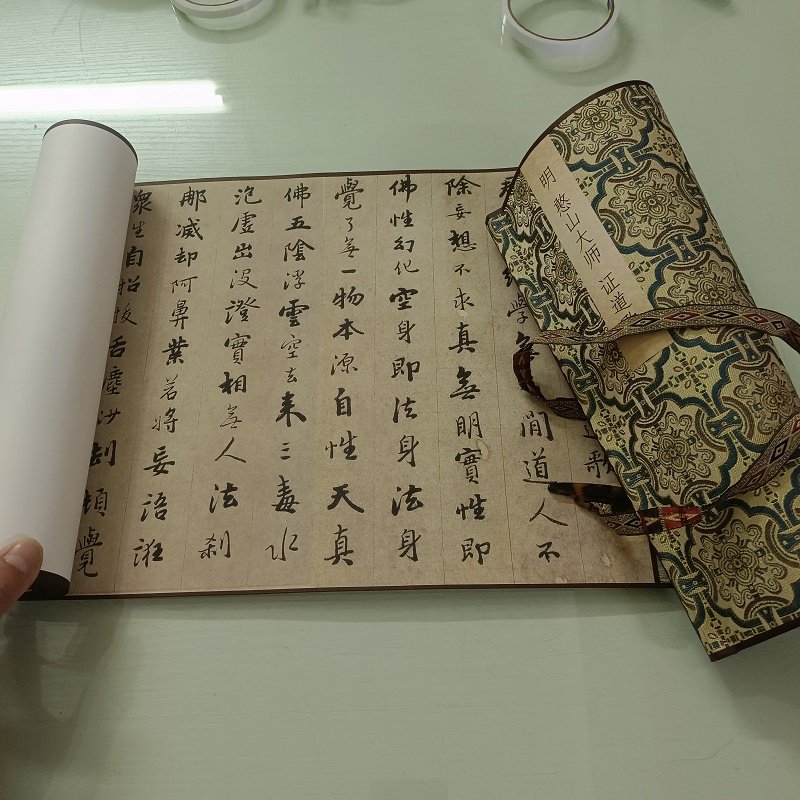 明 憨山大师 证道
歌
學無閒道人不
除妄想不求真無明實性即
佛性幻化空身即法身法身
覺了無一物本源自性天真
佛五陰浮雲空去来三毒水
泡虛出没證實相無人法剎
那滅却阿鼻業若將妄語誑
衆生自招拔舌塵沙劫頓覺